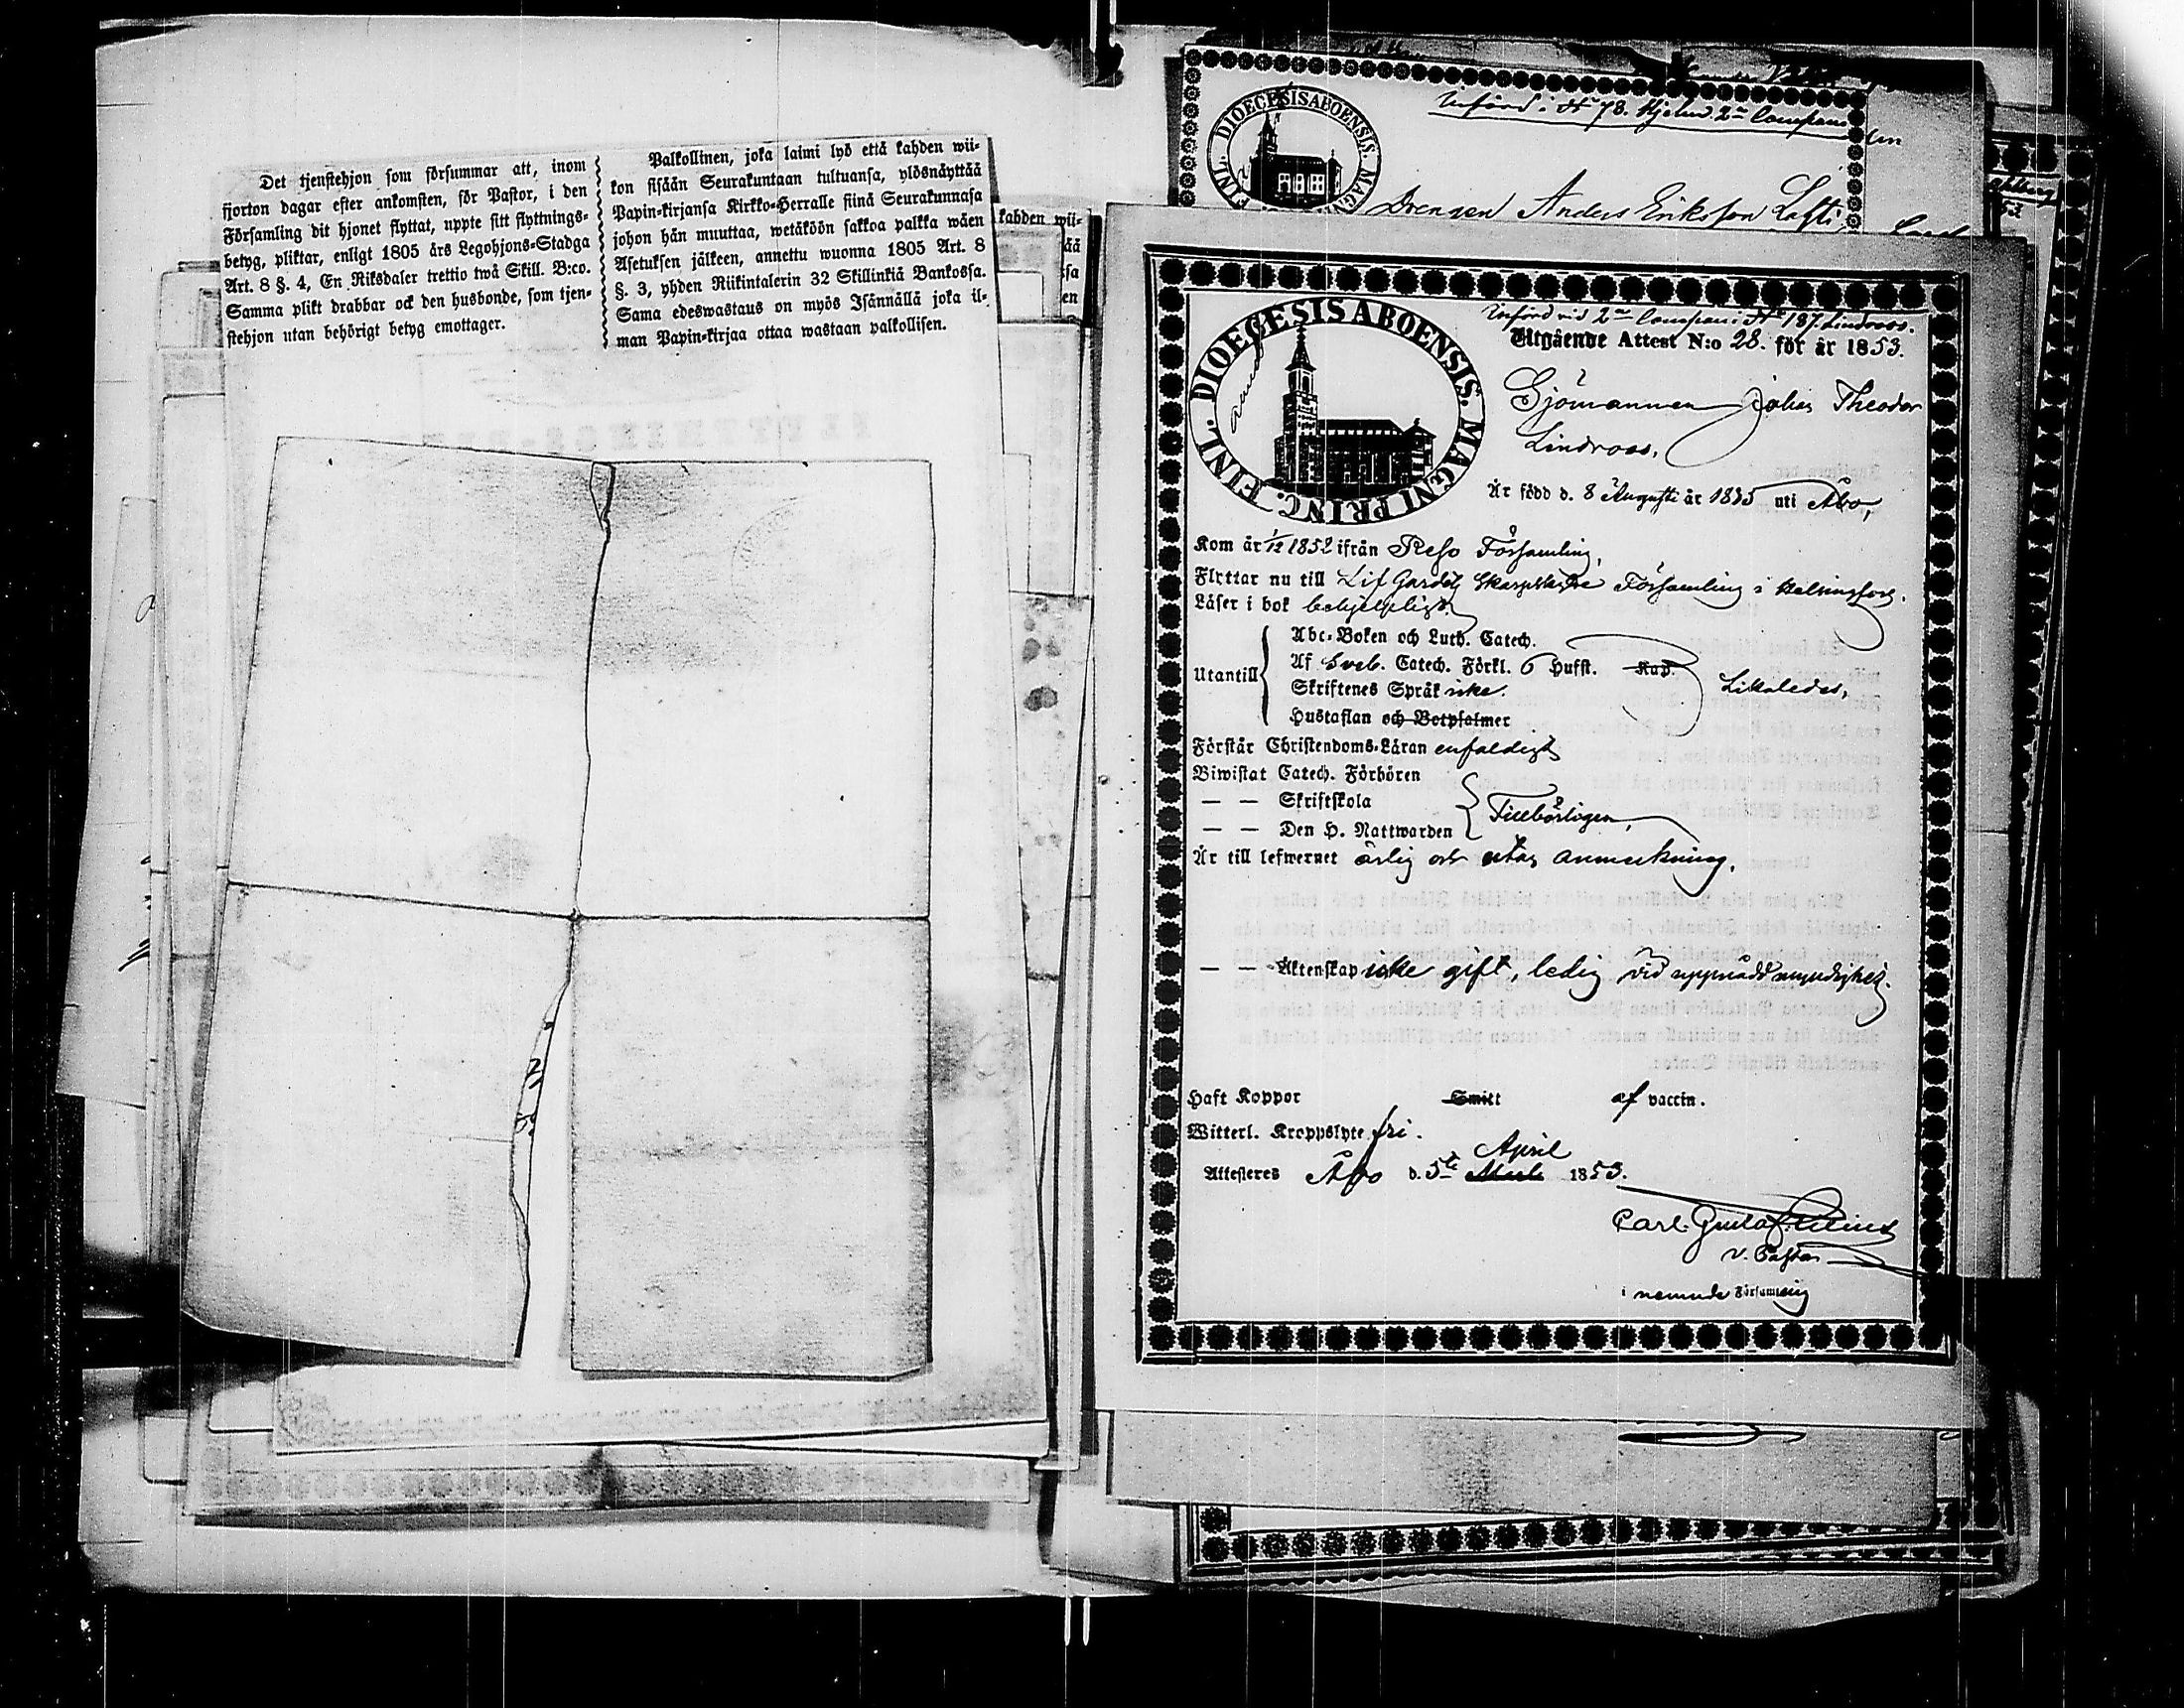 Det tjenstehjon som försummar att, inom
fjorton dagar efter ankomsten, för Pastor, i den
Församling dit hjonet flyttat, uppte sitt flyttnings-
betyg, pliktar, enligt 1805 års Legohjons-Stadga
Art. 8 §. 4, En Riksdaler trettio twå Skill. B:co.
Samma plikt drabbar ock den husbonde, som tjen-
stehjon utan behörigt betyg emottager.
Palkollinen, joka laimi lyö että kahden wii-
kon sisään Seurakuntaan tultuansa, ylösnäyttää
Papin-kirjansa Kirkko-Herralle siinä Seurakunnasa
johon hän muuttaa, wetäköön sakkoa palkka wäen
Asetuksen jälkeen, annettu wuonna 1805 Art. 8
§. 3, yhden Riikintalerin 32 Skillinkiä Bankossa.
Sama edeswastaus on myös Isännällä joka il-
man Papin-kirjaa ottaa wastaan palkollisen.
kahden wii-
DIOECESIS ABOENSIS. MAG
FINL.
Införd i No 78. Hjelm. 2n Compani
Drengen Anders Eriksson Lafti
DIOECESIS ABOENSIS. MAGNI PRINC. FINL.
Införd vid 2n Compani No 187. Lindroos.
Utgående Attest N:o 28. för år 1853.
Sjömannen Johan Theodor
Lindroos,
Är född d. 8 Augusti år 1835 uti Åbo,
Kom år 1/12 1852 ifrån Reso Församling,
Flyttar nu till Lif Gardets Skarpskytte Församling i Helsingfors.
Läser i bok behjelpligt
Utantill
Abc-Boken och Luth. Catech.
Af Sveb. Catech. Förkl. 6 Hufst. Kap.
Skriftenes Språk icke.
Hustaflan och Botpsalmer
Likaledes,
Förstår Christendoms-Läran enfaldigt
Biwistat Catech. Förhören
— — Skriftskola
— — Den H. Nattwarden
Tillbörligen,
Är till lefwernet ärlig och utan anmärkning.
— — Äktenskap icke gift, ledig vid uppnådd myndighet.
Haft Koppor Smitt af vaccin.
Witterl. Kroppslyte fri.
April
Attesteres Åbo d. 5te 1853.
Carl Gustaf
v. Pastor
i nemnde Församling